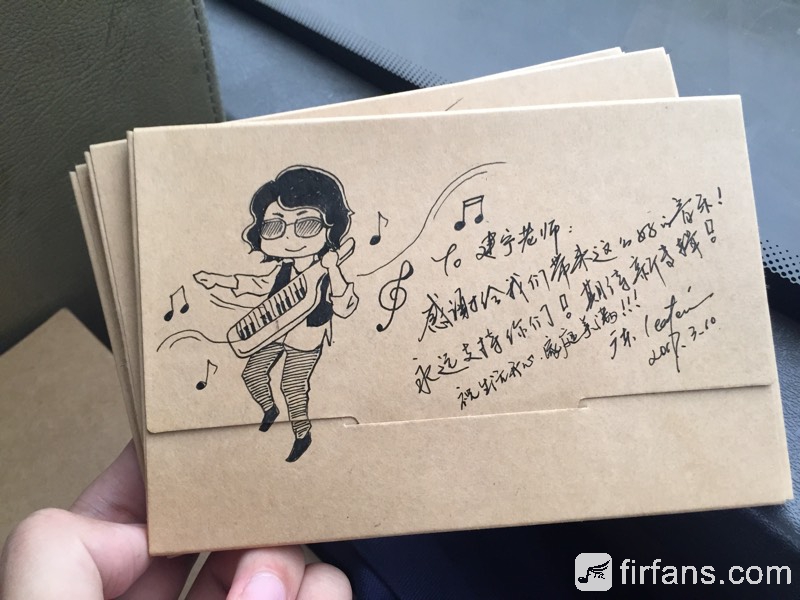 To 建宁老师:
感谢你给我们带来这么好的音乐!
永远支持你们! 期待新专辑!
祝生活开心,家庭美满!!!
2017.3.10
firfans.com